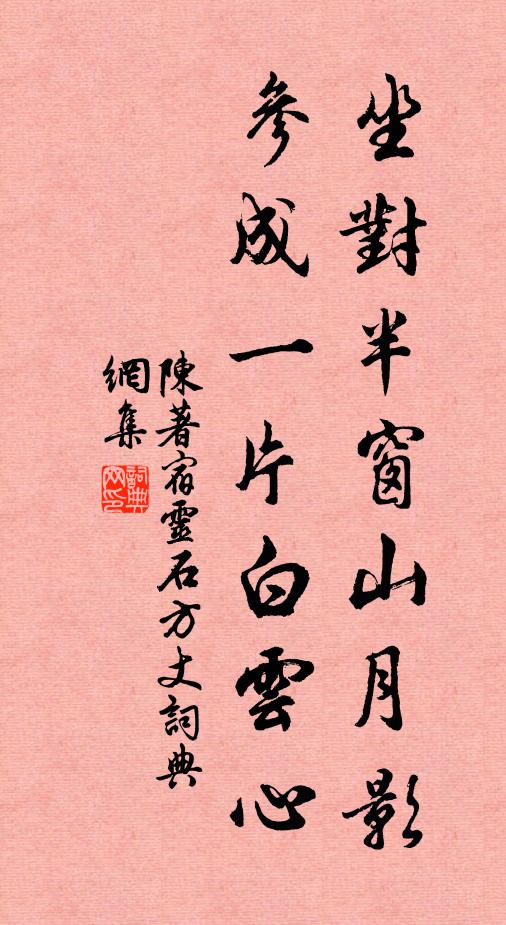 坐對半窗山月影
參成一片白雲心
陳著宿靈石方丈詞典
網集
詞典
网印